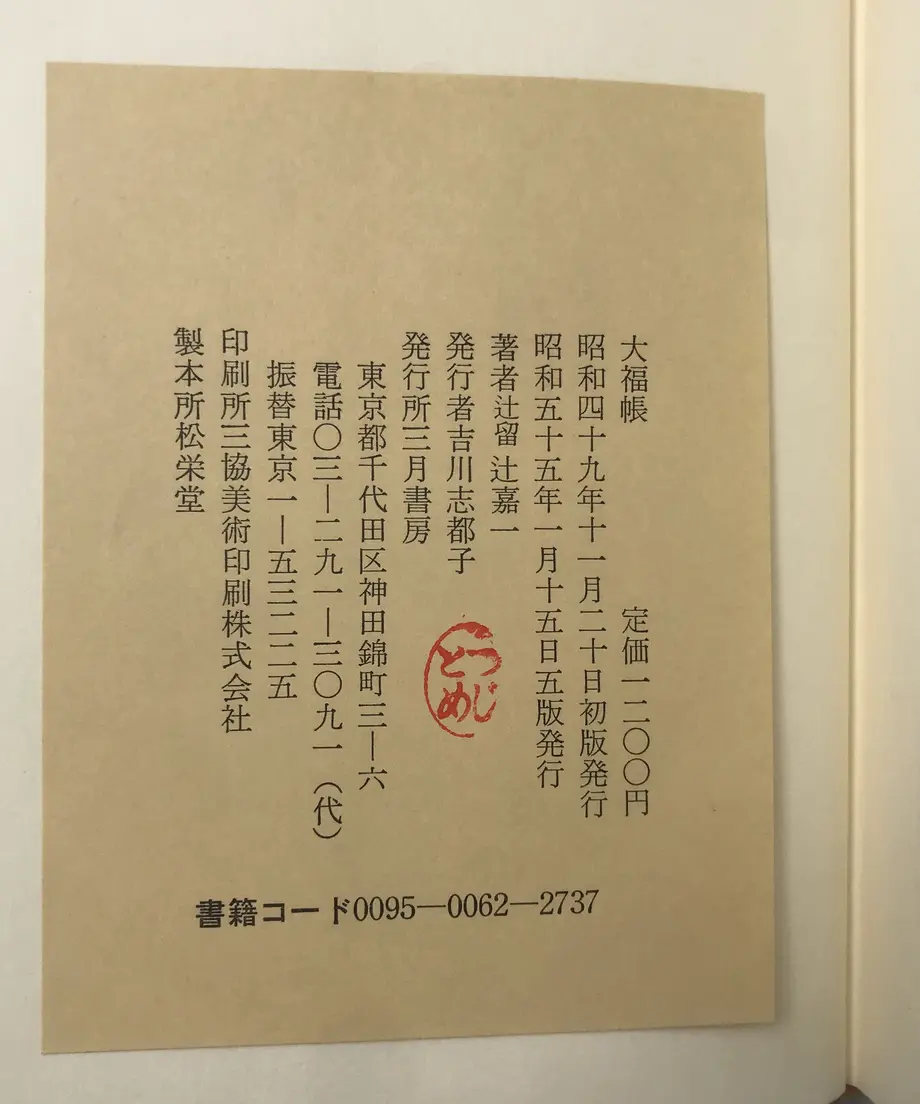 大福帳　定価一二〇〇円
昭和四十九年十一月二十日初版発行
昭和五十五年一月十五日五版発行
著者辻留 辻嘉一
発行者吉川志都子
発行所三月書房
東京都千代田区神田錦町三—六
電話〇三—二九一—三〇九一（代）
振替東京一—五三二二五
印刷所三協美術印刷株式会社
製本所松栄堂
つじ
とめ
書籍コード0095—0062—2737